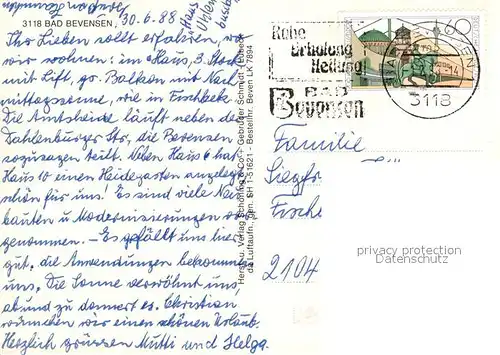 3118 BAD BEVENSEN, 30.6.88
Ihr Lieben sollt erfahren, wo
wir wohnen: im Haus, 3. Stock
mit Lift, gr. Balkon mit Nach
mittagssonne, wie in Fischbeck.
Die Amtsheide läuft neben der
Dahlenburger Str., die Bevensen
sozusagen teilt. Neben Haus 6 hat
Haus 10 einen Heidegarten angelegt
schön für uns! Es sind viele Neu
bauten u Modernisierungen vor
genommen. – Es gefällt uns hier
gut, die Anwendungen bekommen
uns. Die Sonne verwöhnt uns,
ab und zu donnert es. Christian
wünschen wir einen schönen Urlaub.
Herzlich grüssen Mutti und Helga.
Herst. u. Verlag Schöning & Co + Gebrüder Schmidt · Lübeck
Bestellnr. Beven. LK 7894
Ruhe
Erholung
Heilung
BAD
Bevensen
60
3118
Familie
Siegfr
Fische
2104
privacy protection
Datenschutz